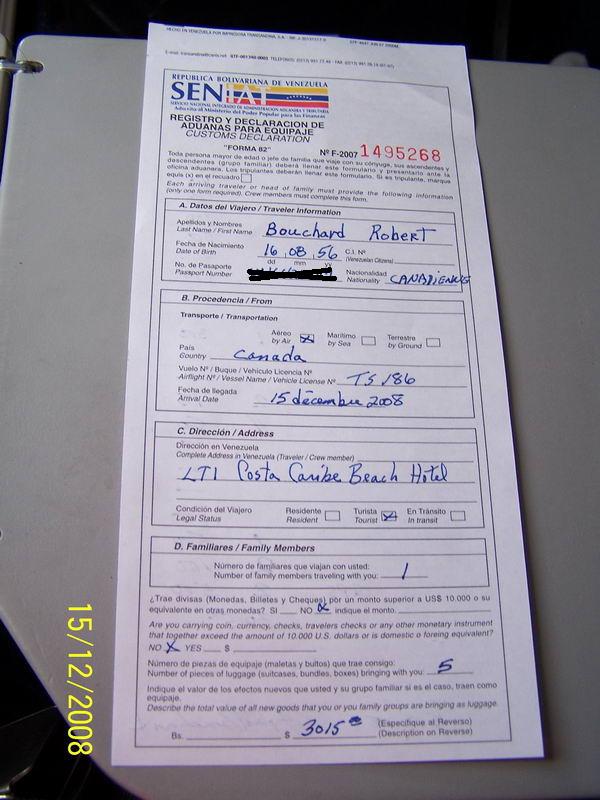 HECHO EN VENEZUELA POR IMPRESORA TRANSANDINA, S.A.
REPUBLICA BOLIVARIANA DE VENEZUELA
SENIAT
SERVICIO NACIONAL INTEGRADO DE ADMINISTRACION ADUANERA Y TRIBUTARIA
Adscrito al Ministerio del Poder Popular para las Finanzas
REGISTRO Y DECLARACION DE
ADUANAS PARA EQUIPAJE
CUSTOMS DECLARATION
"FORMA 82"
Nº F-2007 1495268
Toda persona mayor de edad o jefe de familia que viaje con su cónyuge, sus ascendientes y
descendientes (grupo familiar) deberá llenar este formulario y presentarlo ante la
oficina aduanera. Los tripulantes deberán llenar este formulario. Si es tripulante, marque
equis (x) en el recuadro
Each arriving traveler or head of family must provide the following information
(only one form required). Crew members must complete this form.
A. Datos del Viajero / Traveler Information
Apellidos y Nombres
Last Name / First Name Bouchard Robert
Fecha de Nacimiento
Date of Birth 16 08 56 C.I. Nº
(Venezuelan Citizens)
dd mm yy
No. de Pasaporte
Passport Number
Nacionalidad
Nationality CANADIENNE
B. Procedencia / From
Transporte / Transportation
Aéreo
by Air X
Marítimo
by Sea
Terrestre
by Ground
País
Country Canada
Vuelo Nº / Buque / Vehículo Licencia Nº
Airflight Nº / Vessel Name / Vehicle License Nº TS 186
Fecha de llegada
Arrival Date 15 décembre 2008
C. Dirección / Address
Dirección en Venezuela
Complete Address in Venezuela (Traveler / Crew member)
LTI Costa Caribe Beach Hotel
Condición del Viajero
Legal Status
Residente
Resident
Turista
Tourist X
En Tránsito
In transit
D. Familiares / Family Members
Número de familiares que viajan con usted:
Number of family members traveling with you: 1
¿Trae divisas (Monedas, Billetes y Cheques) por un monto superior a US$ 10.000 o su
equivalente en otras monedas? SI NO X indique el monto.
Are you carrying coin, currency, checks, travelers checks or any other monetary instrument
that together exceed the amount of 10.000 U.S. dollars or is domestic or foreing equivalent?
NO X YES $
Número de piezas de equipaje (maletas y bultos) que trae consigo:
Number of pieces of luggage (suitcases, bundles, boxes) bringing with you: 5
Indique el valor de los efectos nuevos que usted y su grupo familiar si es el caso, traen como
equipaje.
Describe the total value of all new goods that you or you family groups are bringing as luggage.
Bs. $ 3015 00
(Especifique al Reverso)
(Description on Reverse)
15/12/2008